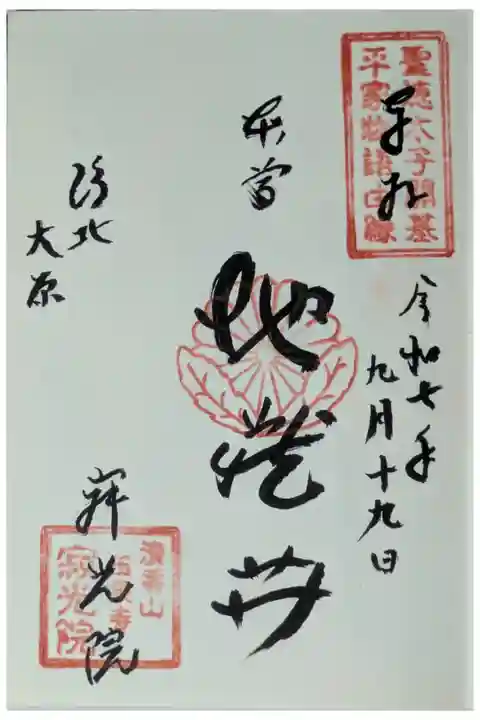 聖徳太子開基
平家物語由縁
奉拝
令和七年
九月十九日
本尊
地蔵艹
洛北
大原
寂光院
清香山
玉泉寺
寂光院